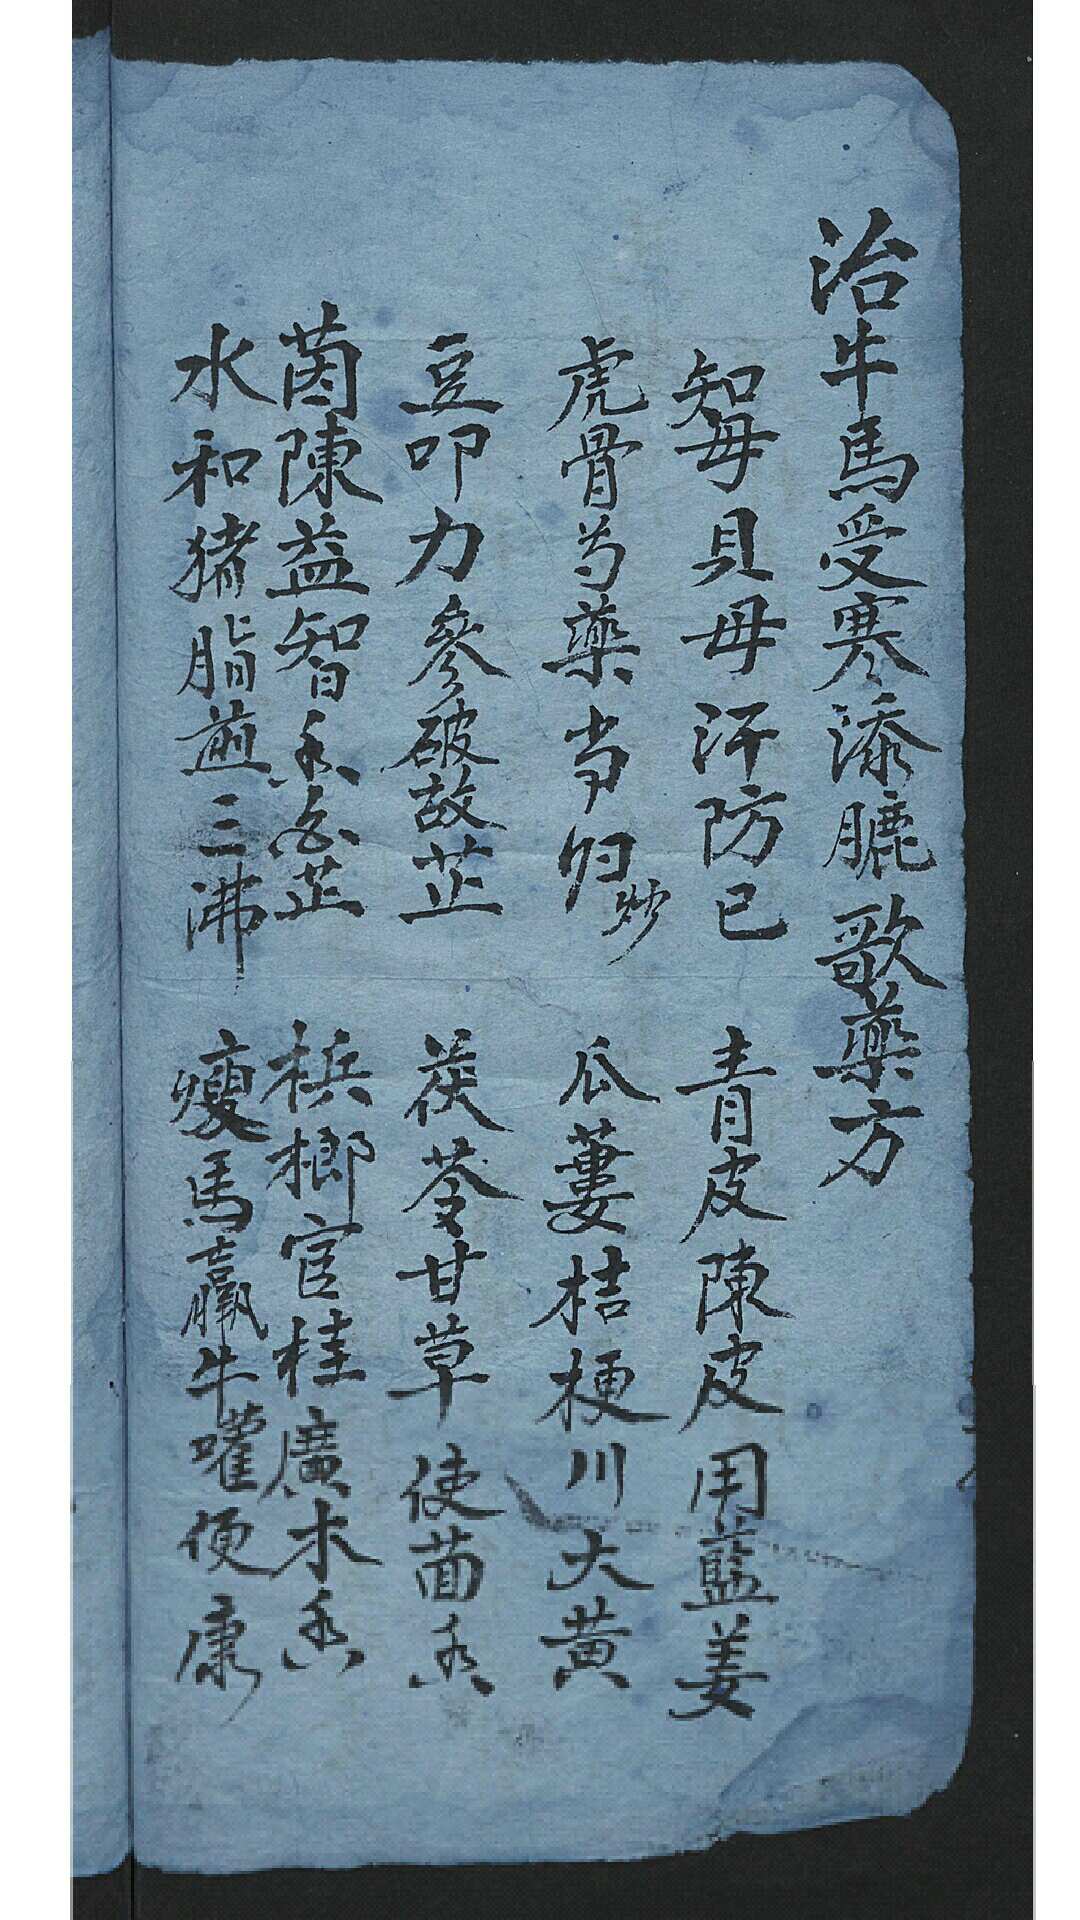 治牛馬受寒添臕歌藥方
知母貝母汗防已 青皮陳皮用藍姜
虎骨芍藥当归炒 瓜蔞桔梗川大黄
豆叩力參破故芷 茯苓甘草使茴香
茵陳益智香白芷 梹榔官桂廣木香
水和猪脂煎三沸 瘦馬羸牛嚾便康